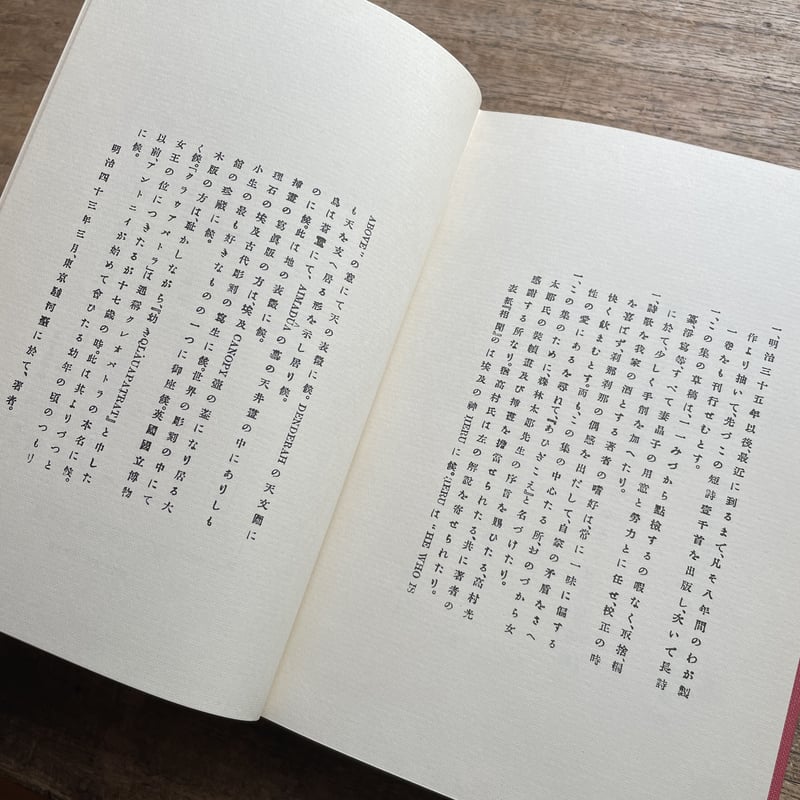 一、明治三十五年以後最近に到るまで、凡そ八年間のわが製
作より抽いて、先づこの短詩壹千首を出版し、次いで長詩
一卷をも刊行せむとす。
一、この集の草稿は、一一みづから點檢するの暇なく、取捨、編
纂、淨寫等すべて妻晶子の用意と勞力とに任せ、校正の時
に於て少しく手削を加へたり。
一、詩歌を我家の酒とする著者の嗜好は、常に一味に偏する
を喜ばず、刹那刹那の偶感を出だして、自家の矛盾をさへ
快く飲まむとす。而も、この集の中心たる所、おのづから女
性の愛にあるを尋ねて、『あひぎこえ』と名づけたり。
一、この集のために森林太郎先生の序を賜ひたる、高村光
太郎氏の裝幀畫及び挿畫を擔當せられたる、共に著者の
感謝する所なり。猶高村氏は左の解説を寄せられたり。
表紙『相聞』のは埃及の神HERUに候。HERUは“HE WHO IS
ABOVE”の意にて天の表徴に候。DENDERAHの天文圖に
も天を支へ居る形を示し居り候。
鳥は蒼鷹にて、AIMADUAの墓の天井畫の中にありしも
のに候。此は地の表徴に候。
挿畫の寫眞版の方は、埃及CANOPY壺の蓋になり居る大
理石の埃及古代彫刻の寫生に候。世界の彫刻の中にて
小生の最も好きなものの一つに御座候。英國國立博物
館の珍藏に候。
木版の方は、耻かしながら、『幼きQLAUAPATRAT』と申した
く候。『クラウアパトラ』は通稱クレオパトラの本名に候。
女王の位につきたるが十七歳の時、此は其よりづつと
以前、アントニイが始めて會ひたる幼年の頃のつもり
に候。
明治四十三年三月、東京駿河臺に於て、著者。